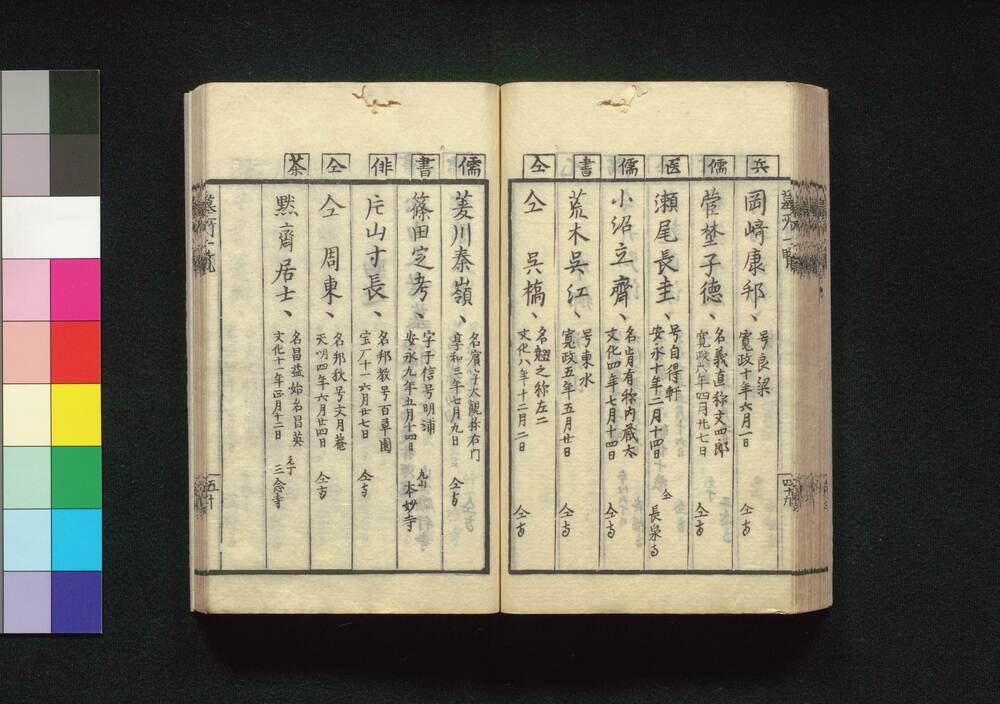 兵
岡﨑康邦、
号良梁
寛政十年六月一日
仝寺
儒
菅埜子德、
名義直称文四郎
寛政八年四月廿七日
仝寺
医
瀬尾長圭、
号自得軒
安永十年二月十四日
仝
長泉寺
儒
小沼立齊、
名肯有称内蔵太
文化四年七月十四日
仝寺
書
荒木呉江、
号東水
寛政五年五月廿日
仝寺
仝
仝 呉橋、
名翹之称左二
文化八年十二月二日
仝寺
四十九
儒
菱川秦嶺、
名賓字大観称右門
享和三年七月九日
仝寺
書
篠田定考、
字子信号明浦
安永九年五月十四日
丸山
本妙寺
俳
片山寸長、
名邦教号百草園
宝厂十一六月廿七日
仝寺
仝
仝 周東、
名邦狄号文月菴
天明四年六月廿四日
仝寺
茶
黙齊居士、
名昌益始名昌英
文化十一年正月十二日
三念寺
五十